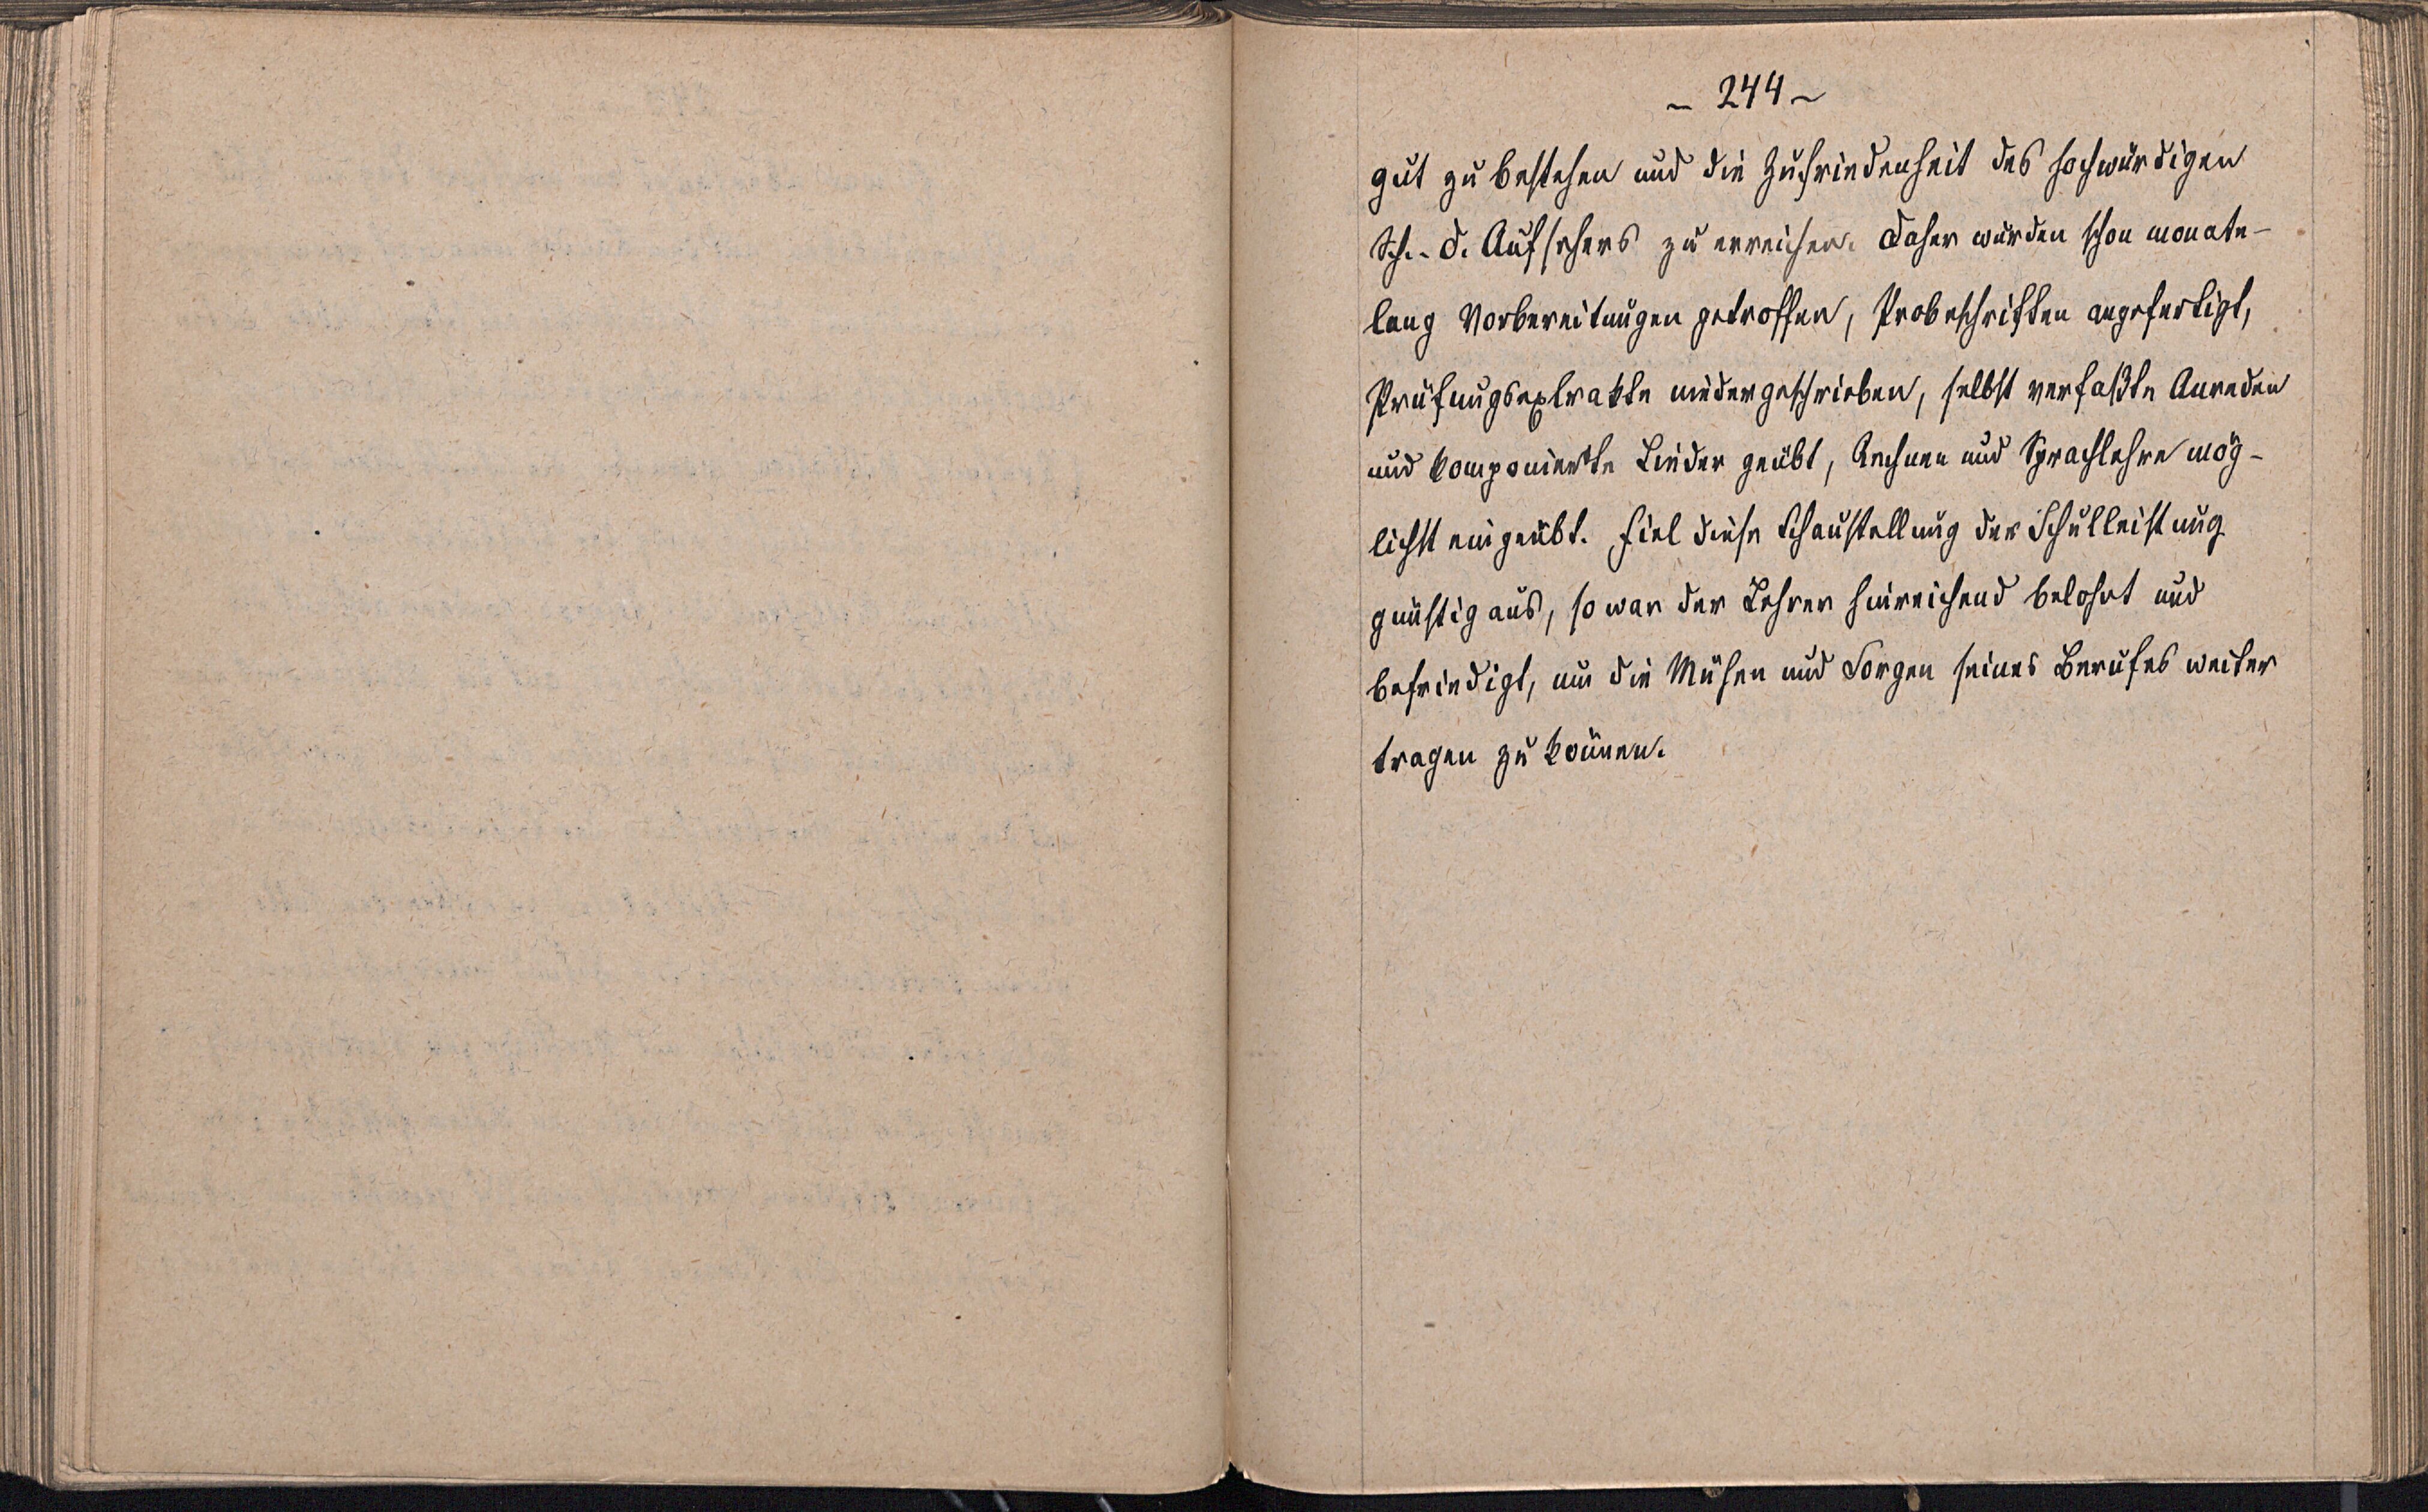 – 244 –
gut zu bestehen und die Zufriedenheit des hochwürdigen
Sch.-d. Aufsehers zu erreichen. Daher wurden schon monate-
lang Vorbereitungen getroffen, Probeschriften angefertigt,
Prüfungsextrakte niedergeschrieben, selbst verfaßte Anreden
und komponierte Lieder geübt, Rechnen und Sprachlehre mög-
lichst eingeübt. Fiel diese Schaustellung der Schulleistung
günstig aus, so war der Lehrer hinreichend belohnt und
befriedigt, um die Mühen und Sorgen seines Berufes weiter
tragen zu können.